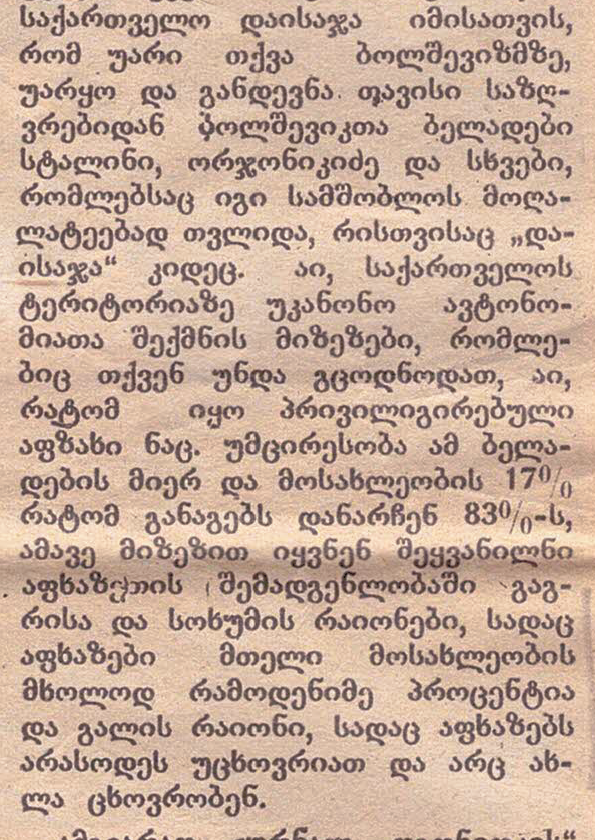 საქართველო დაისაჯა იმისათვის,
რომ უარი თქვა ბოლშევიზმზე,
უარყო და განდევნა თავისი საზღ-
ვრებიდან ბოლშევიკთა ბელადები
სტალინი, ორჯონიკიძე და სხვები,
რომლებსაც იგი სამშობლოს მოღა-
ლატეებად თვლიდა, რისთვისაც „და-
ისაჯა“ კიდეც. აი, საქართველოს
ტერიტორიაზე უკანონო ავტონო-
მიათა შექმნის მიზეზები, რომლე-
ბიც თქვენ უნდა გცოდნოდათ, აი,
რატომ იყო პრივილიგირებული
აფხაზი ნაც. უმცირესობა ამ ბელა-
დების მიერ და მოსახლეობის 17%
რატომ განაგებს დანარჩენ 83%-ს,
ამავე მიზეზით იყვნენ შეყვანილნი
აფხაზეთის შემადგენლობაში გაგ-
რისა და სოხუმის რაიონები, სადაც
აფხაზები მთელი მოსახლეობის
მხოლოდ რამოდენიმე პროცენტია
და გალის რაიონი, სადაც აფხაზებს
არასოდეს უცხოვრიათ და არც ახ-
ლა ცხოვრობენ.